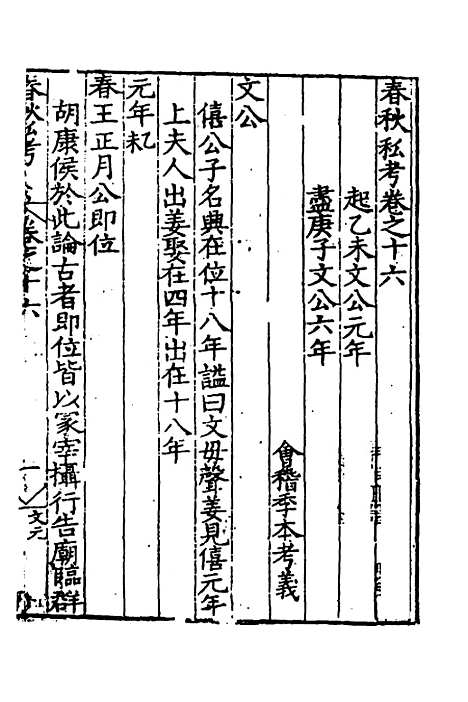 春秋私考卷之十六
起乙未文公元年
盡庚子文公六年
會稽季本考義
文公
僖公子名興在位十八年謚曰文毋聲姜見僖元年
上夫人出姜娶在四年出在十八年
元年
春王正月公即位
胡康侯於此論古者即位皆以冢宰攝行告廟臨群
春秋私考 卷之十六
文元